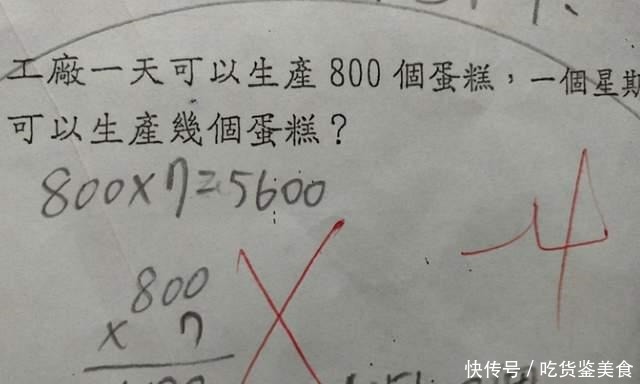 工廠一天可以生產800個蛋糕，一個星期
可以生產幾個蛋糕？
800×7=5600
800
× 7
-4
快传号／吃货鉴美食